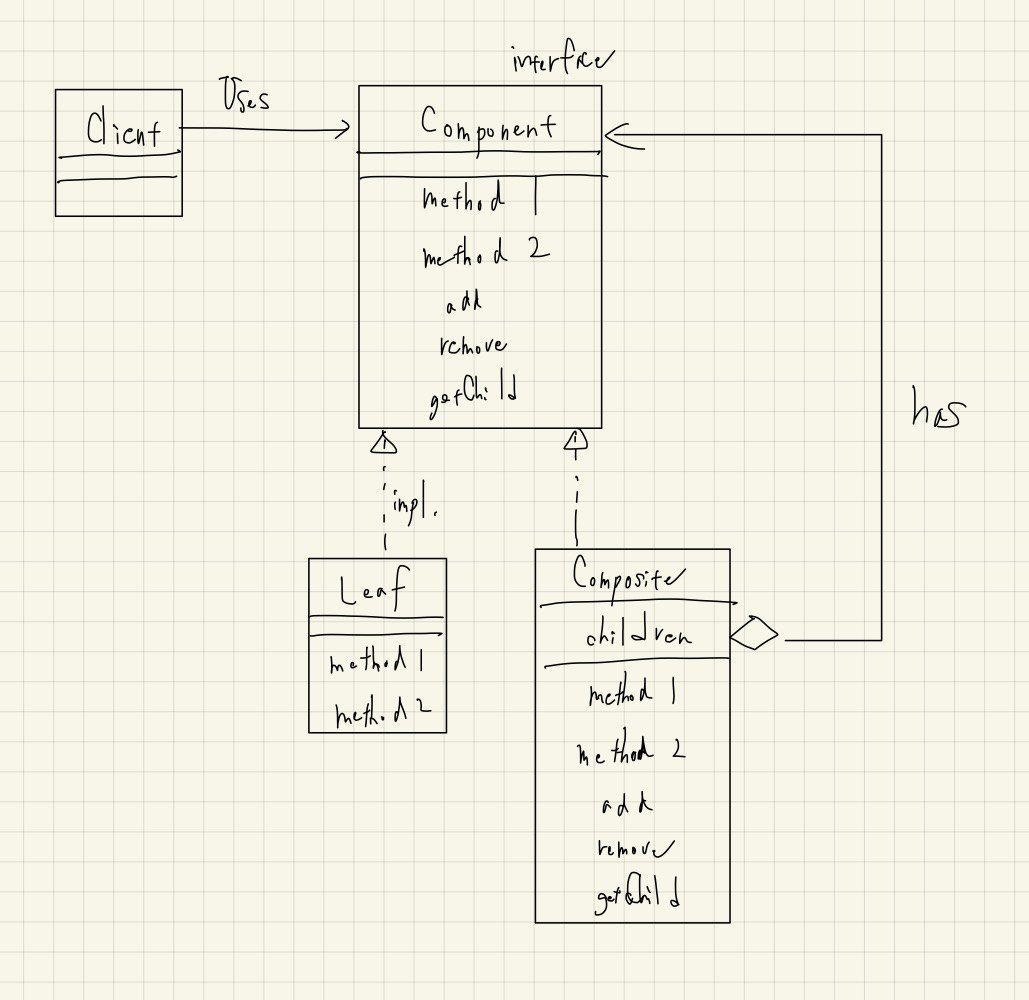 interface
Uses
Client
Component
method 1
method 2
add
remove
getChild
has
impl.
Leaf
method 1
method 2
Composite
children
method 1
method 2
add
remove
getChild